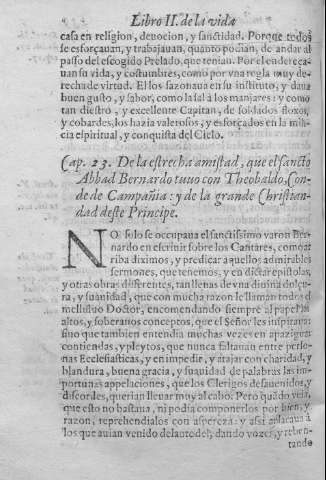 Libro II. de la vida
casa en religion, deuocion, y sanctidad. Porque todos
se esforçauan, y trabajauan, quanto podian, de andar al
passo del escogido Prelado, que tenian. Por el endereça
uan su vida, y costumbres, como por vna regla muy de-
recha de virtud. El los sazonaua en su instituto, y daua
buen gusto, y sabor, como la sal à los manjares: y como
tan diestro, y excellente Capitan, de soldados floxos,
y cobardes, los hazia valerosos, y esforçados en la mili-
cia espiritual, y conquista del Cielo.
Cap. 23. De la estrecha amistad, que el sancto
Abbad Bernardo tuuo con Theobaldo, Con-
de de Campañia: y de la grande Christian-
dad deste Principe.
NO solo se occupaua el sanctissimo varon Ber-
nardo en escriuir sobre los Cantares, como ar
riba diximos, y predicar aquellos admirables
sermones, que tenemos, y en dictar epistolas,
y otras obras differentes, tan llenas de vna diuina dolçu-
ra, y suauidad, que con mucha razon le llaman todos el
mellifluo Doctor, encomendando siempre al papel los
altos, y soberanos conceptos, que el Señor les inspiraua:
sino que tambien entendia muchas vezes en apaziguar
contiendas, y pleytos, que nunca faltauan entre perso-
nas Ecclesiasticas, y en impedir, y atajar con charidad, y
blandura, buena gracia, y suauidad de palabras las im-
portunas appelaciones, que los Clerigos desauenidos, y
discordes, querian lleuar muy al cabo. Pero quãdo veia,
que esto no bastaua, ni podia componerlos por bien, y
razon, reprehendialos con aspereza: y assi aplacaua à
los que auian venido delante del, dando vozes, y rebẽn-
tando